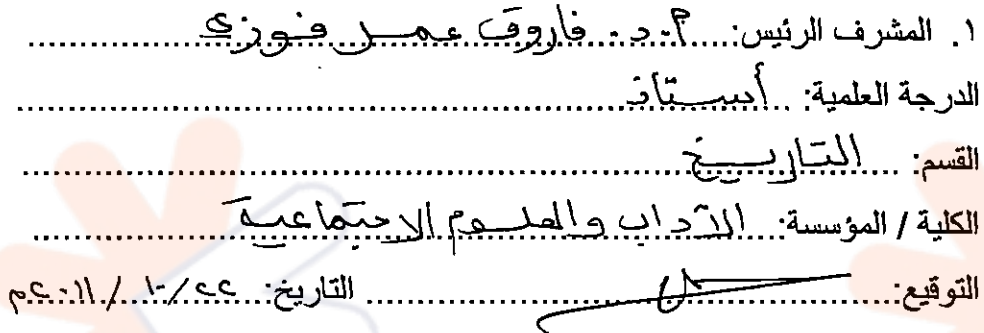 ١. المشرف الرئيس: أ.د. فاروق عمر فوزي
الدرجة العلمية: أستاذ
القسم: التاريخ
الكلية / المؤسسة: الآداب والعلوم الاجتماعية
التوقيع: التاريخ: ٢٢/١٠/٢٠١١م